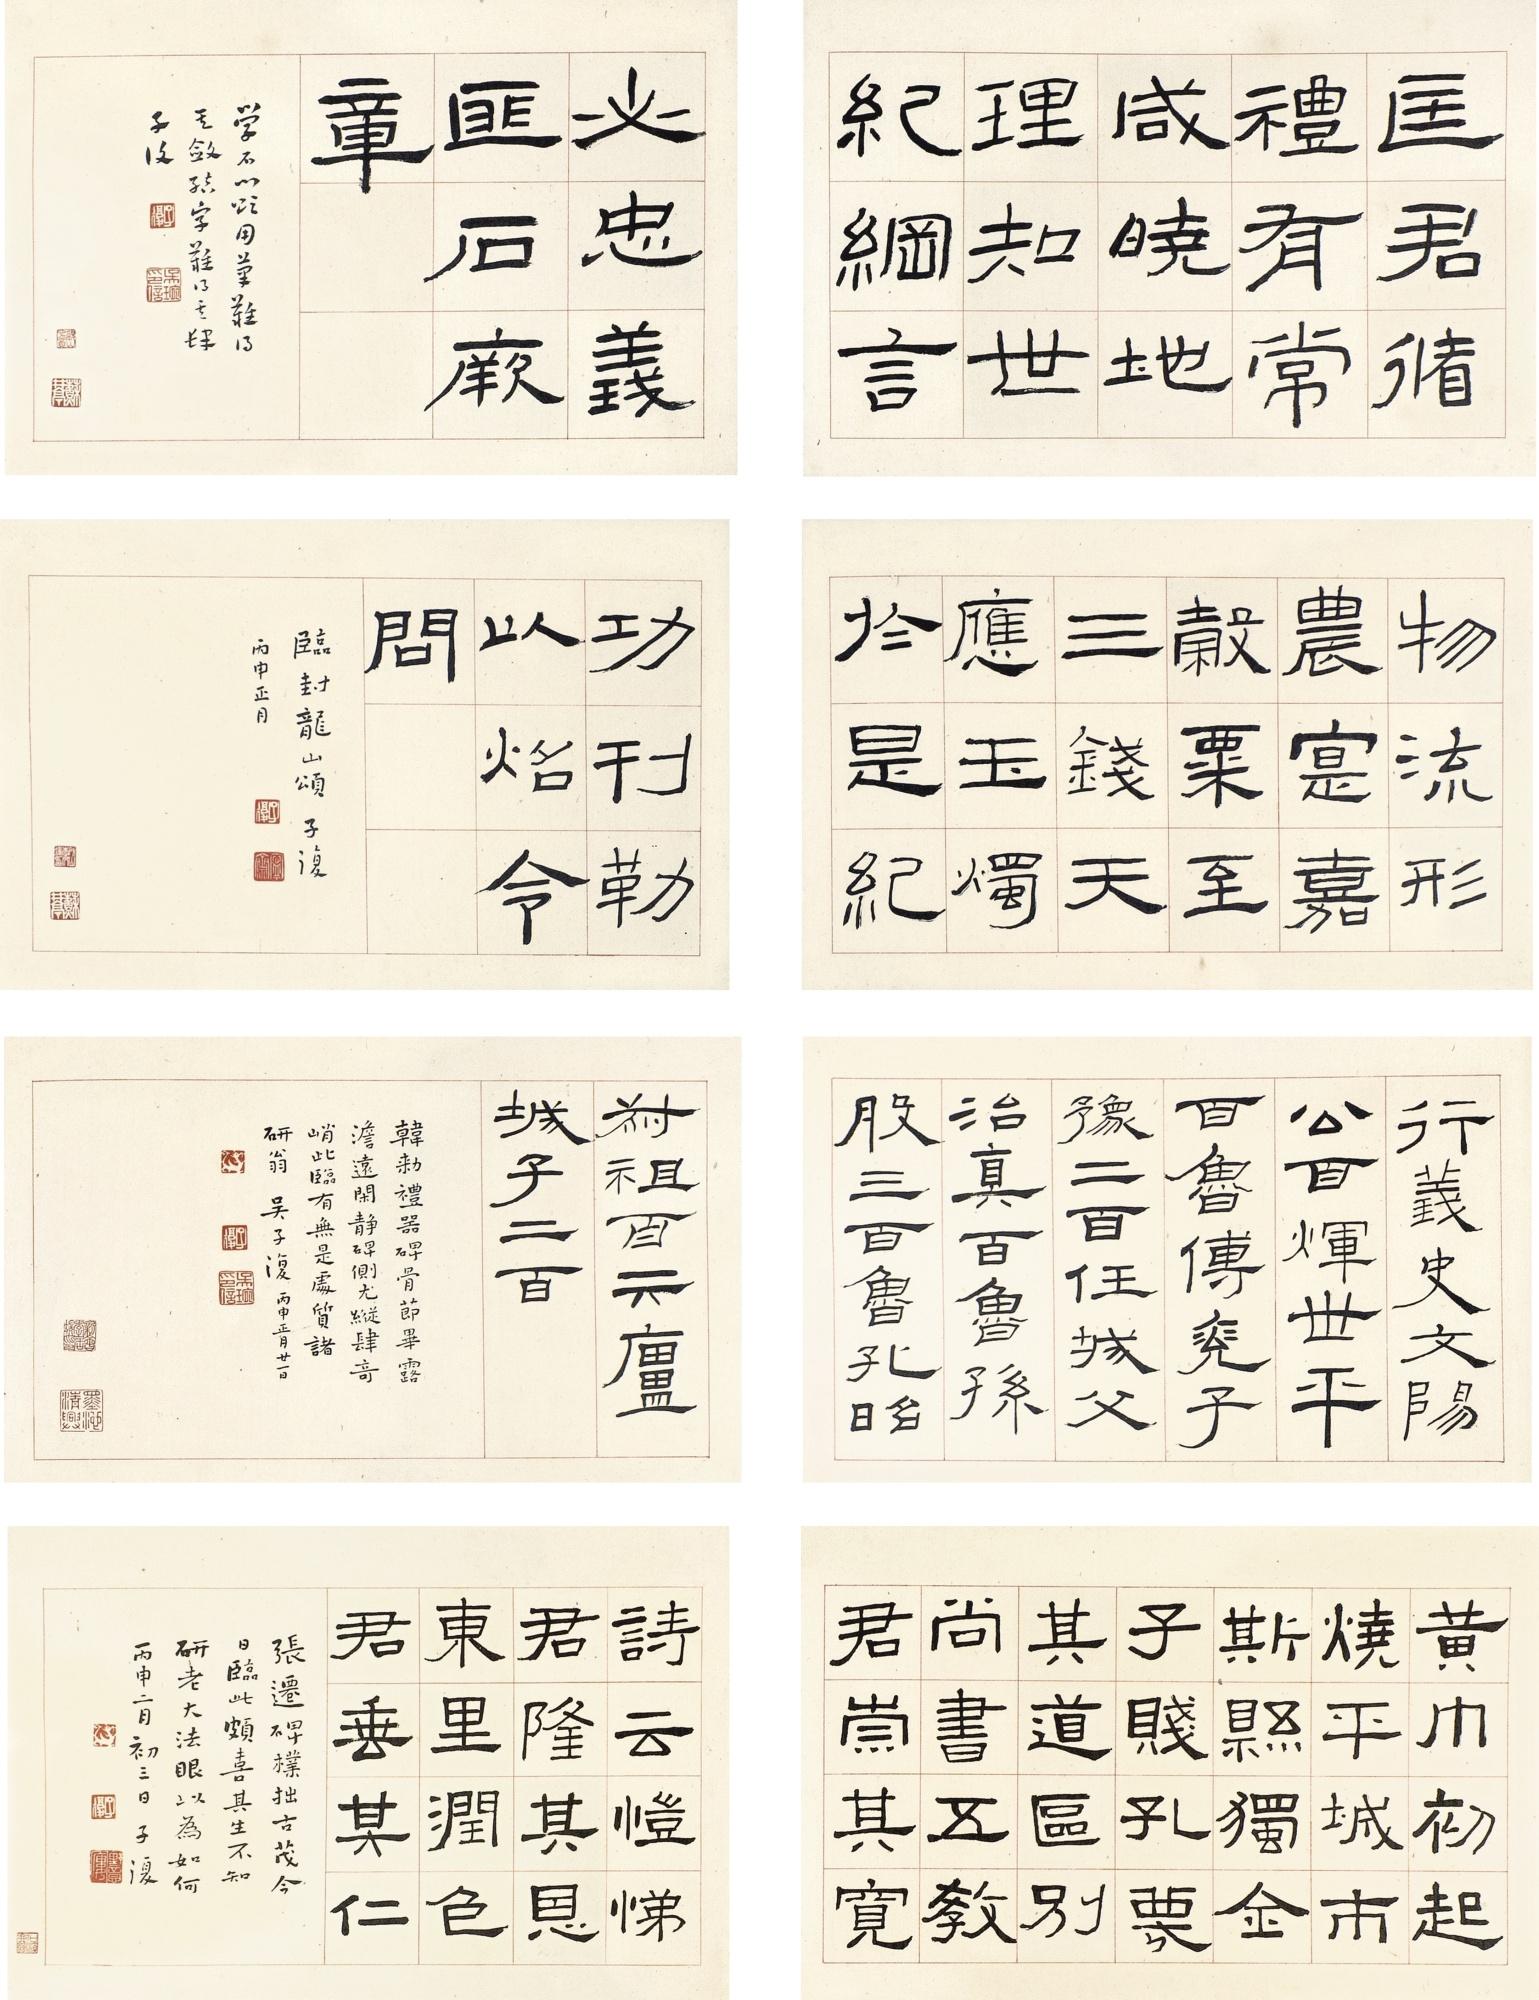 匡君脩
禮有常
咸曉地
理知世
紀綱言
必忠義
匪石厥
章
学石門頌用筆難得
其斂結字難得其肆
子復
物流形
農寔嘉
穀粟至
三錢天
應玉燭
於是紀
功刊勒
以炤令
問
臨封龍山頌 子復
丙申正月
行義史文陽
公百煇世平
百魯傅兖子
豫二百任城父
治真百魯孫
股三百魯孔昭
祔祖百六廬
城子二百
韓勑禮器碑骨節畢露
澹遠閑静碑側尤縱肆奇
峭此臨有無是處質諸
研翁 吴子復 丙申正月廿一日
黄巾初起
燒平城市
斯縣獨金
子賤孔蔑
其道區别
尚書五教
君崇其寬
詩云愷悌
君隆其恩
東里潤色
君垂其仁
張遷碑樸拙古茂今
日臨此頗喜其生不知
研老大法眼以為如何
丙申二月初三日 子復